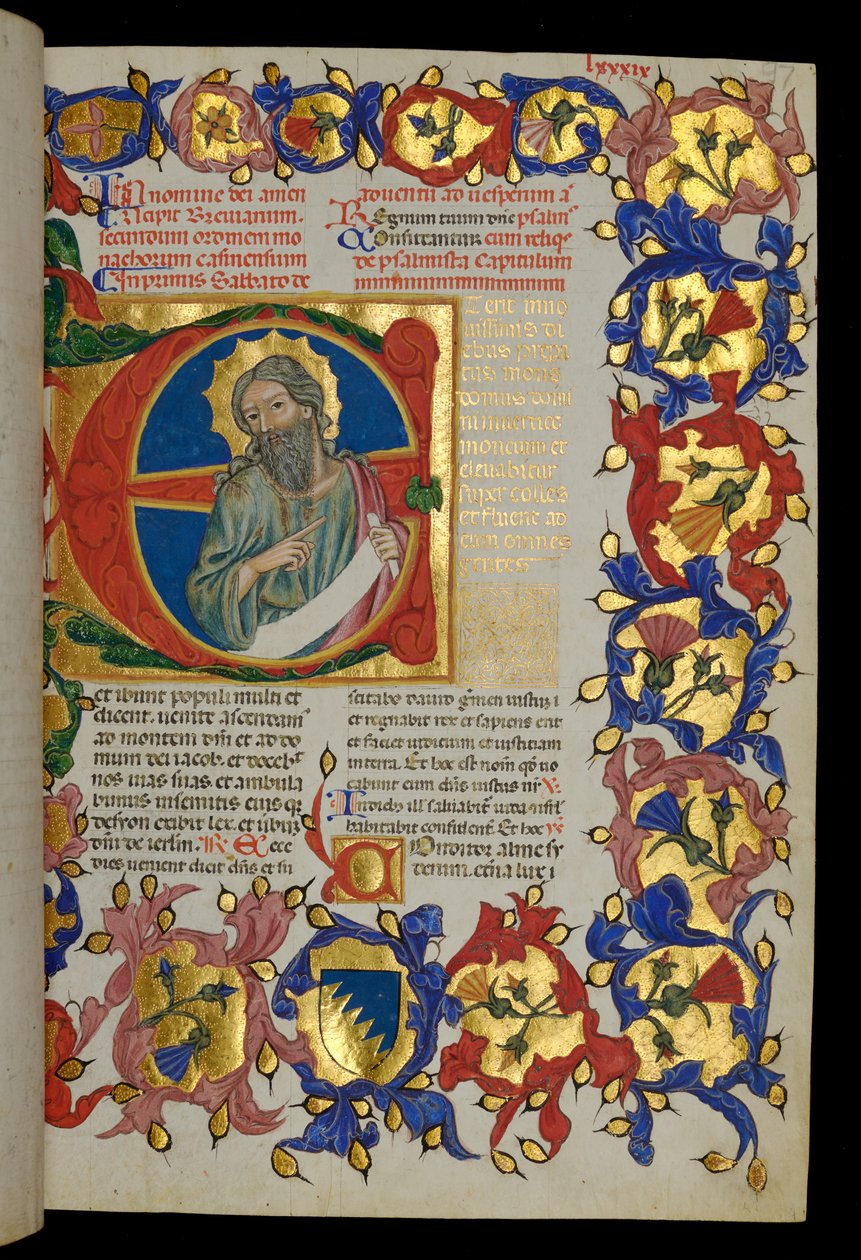 lxxxix
97
In nomine dei amen
Incipit Breviarium.
secundum ordinem mo
nachorum casinensium
Inprimis Sabbato de
adventu ad uesperum a
Regnum tuum dne psalm
Confiteantur cum reliq
de psalmista Capitulum
E
rerit in no
uissimis di
ebus prepa
tus mons
domus domi
ni in uertice
montium et
eleuabitur
super colles
et fluent ad
eum omnes
gentes
et ibunt populi multi et
dicent. uenite ascendam
ad montem dni et ad do
mum dei iacob. et doceb
nos uias suas. et ambula
bimus in semitis eius qr
de syon exibit lex. et ubu
dni de ierlm. R Ecce
dies uenient dicit dns et su
scitabo dauid germen iustu i
et regnabit rex et sapiens erit
et faciet iudicium et iustitiam
in terra. Et hoc est nom qd uo
cabunt eum dns iustus nr V.
In dieb ill saluabit iuda et isrl
habitabit confident. Et hoc ys
Conditor alme sy
derum. etna lux